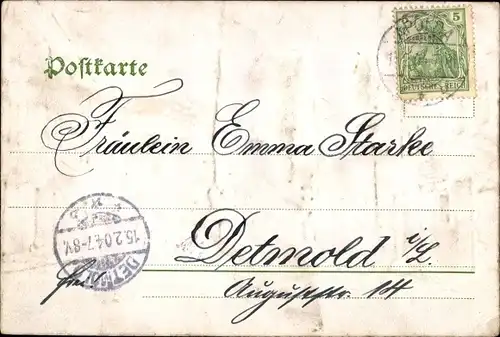 Postkarte
5
DEUTSCHES REICH
Fräulein Emma Starke
15.2.04.7-8V.
DETMOLD
Detmold i/L.
frei
Auguststr. 14